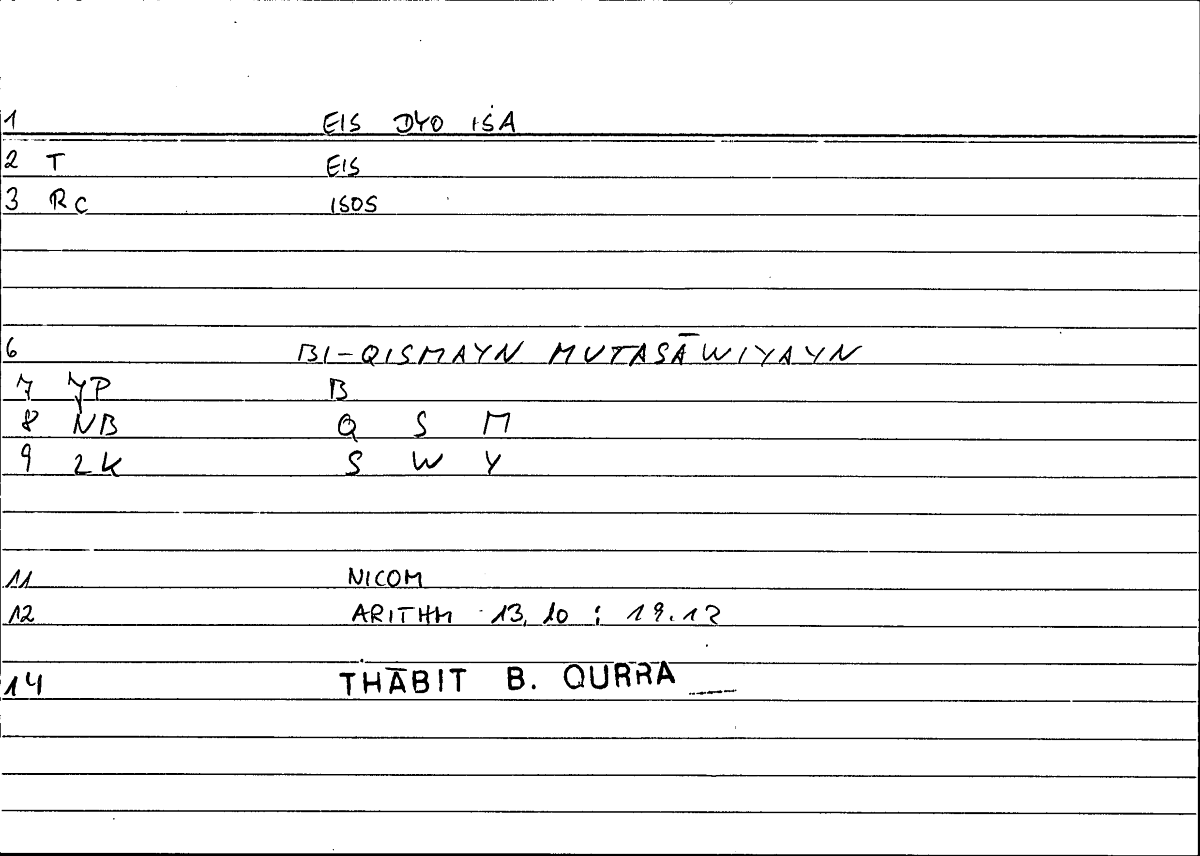 1 EIS DYO ISA
2 T EIS
3 Rc ISOS
6 BI-QISMAYN MUTASĀWIYAYN
7 YP B
8 NB Q S M
9 2K S W Y
11 NICOM
12 ARITHM 13,10 : 19.12
14 THĀBIT B. QURRA